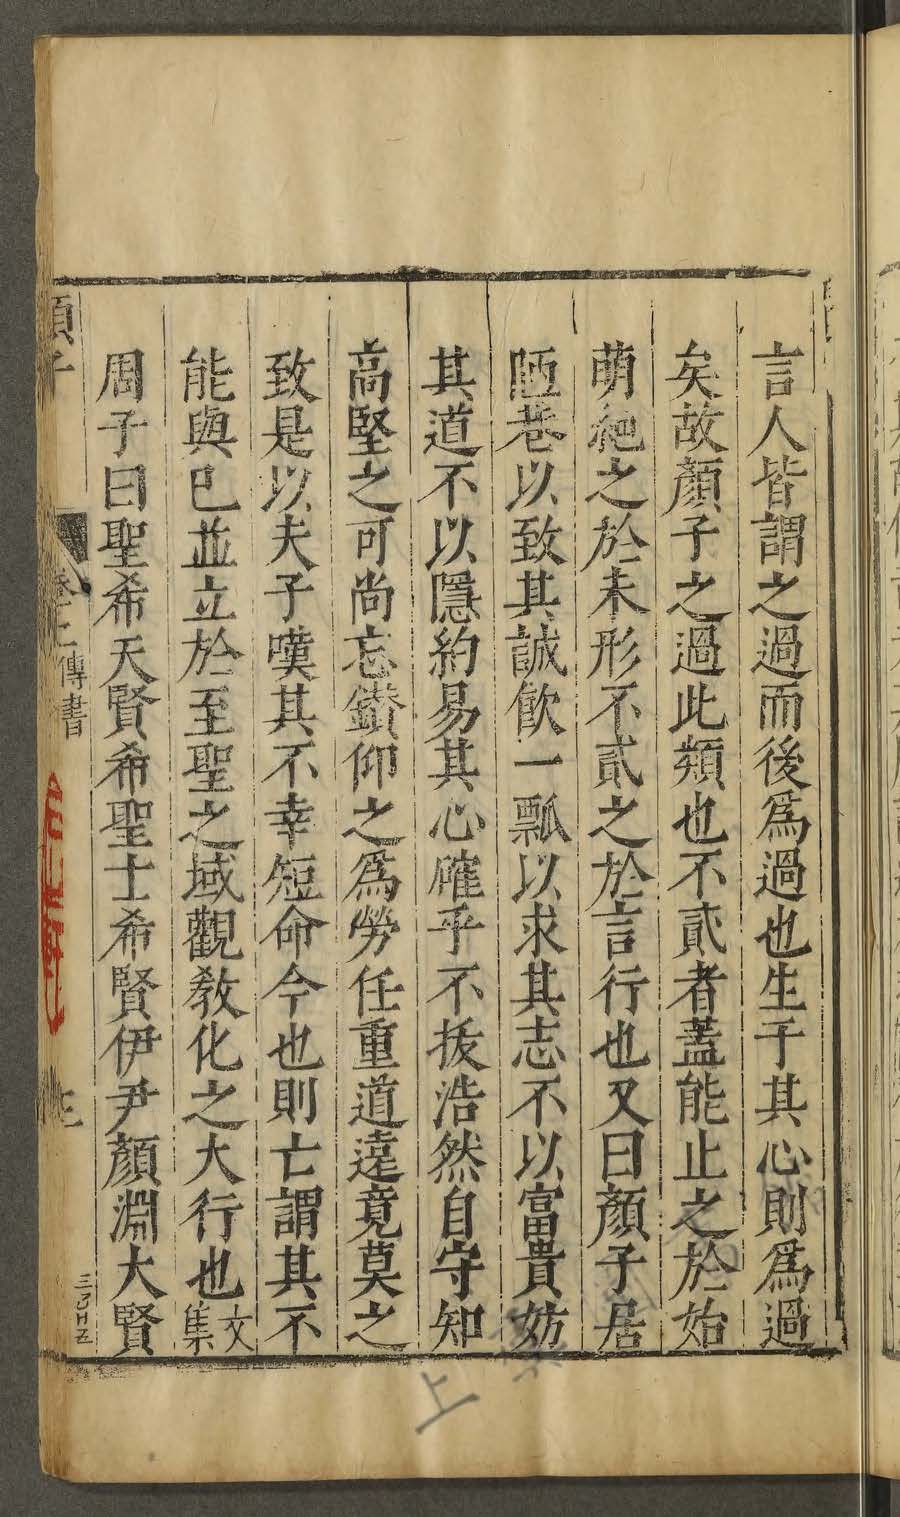 言人皆謂之過而後爲過也生于其心則爲過
矣故顏子之過此類也不貳者蓋能止之於始
萌絕之於未形不貳之於言行也又曰顏子居
陋巷以致其誠飲一瓢以求其志不以富貴妨
其道不以隱約易其心確乎不拔浩然自守知
高堅之可尚忘鑚仰之爲勞任重道遠竟莫之
致是以夫子嘆其不幸短命今也則亡謂其不
能與已並立於至聖之域觀教化之大行也文集
周子曰聖希天賢希聖士希賢伊尹顏淵大賢
子
傳書
上